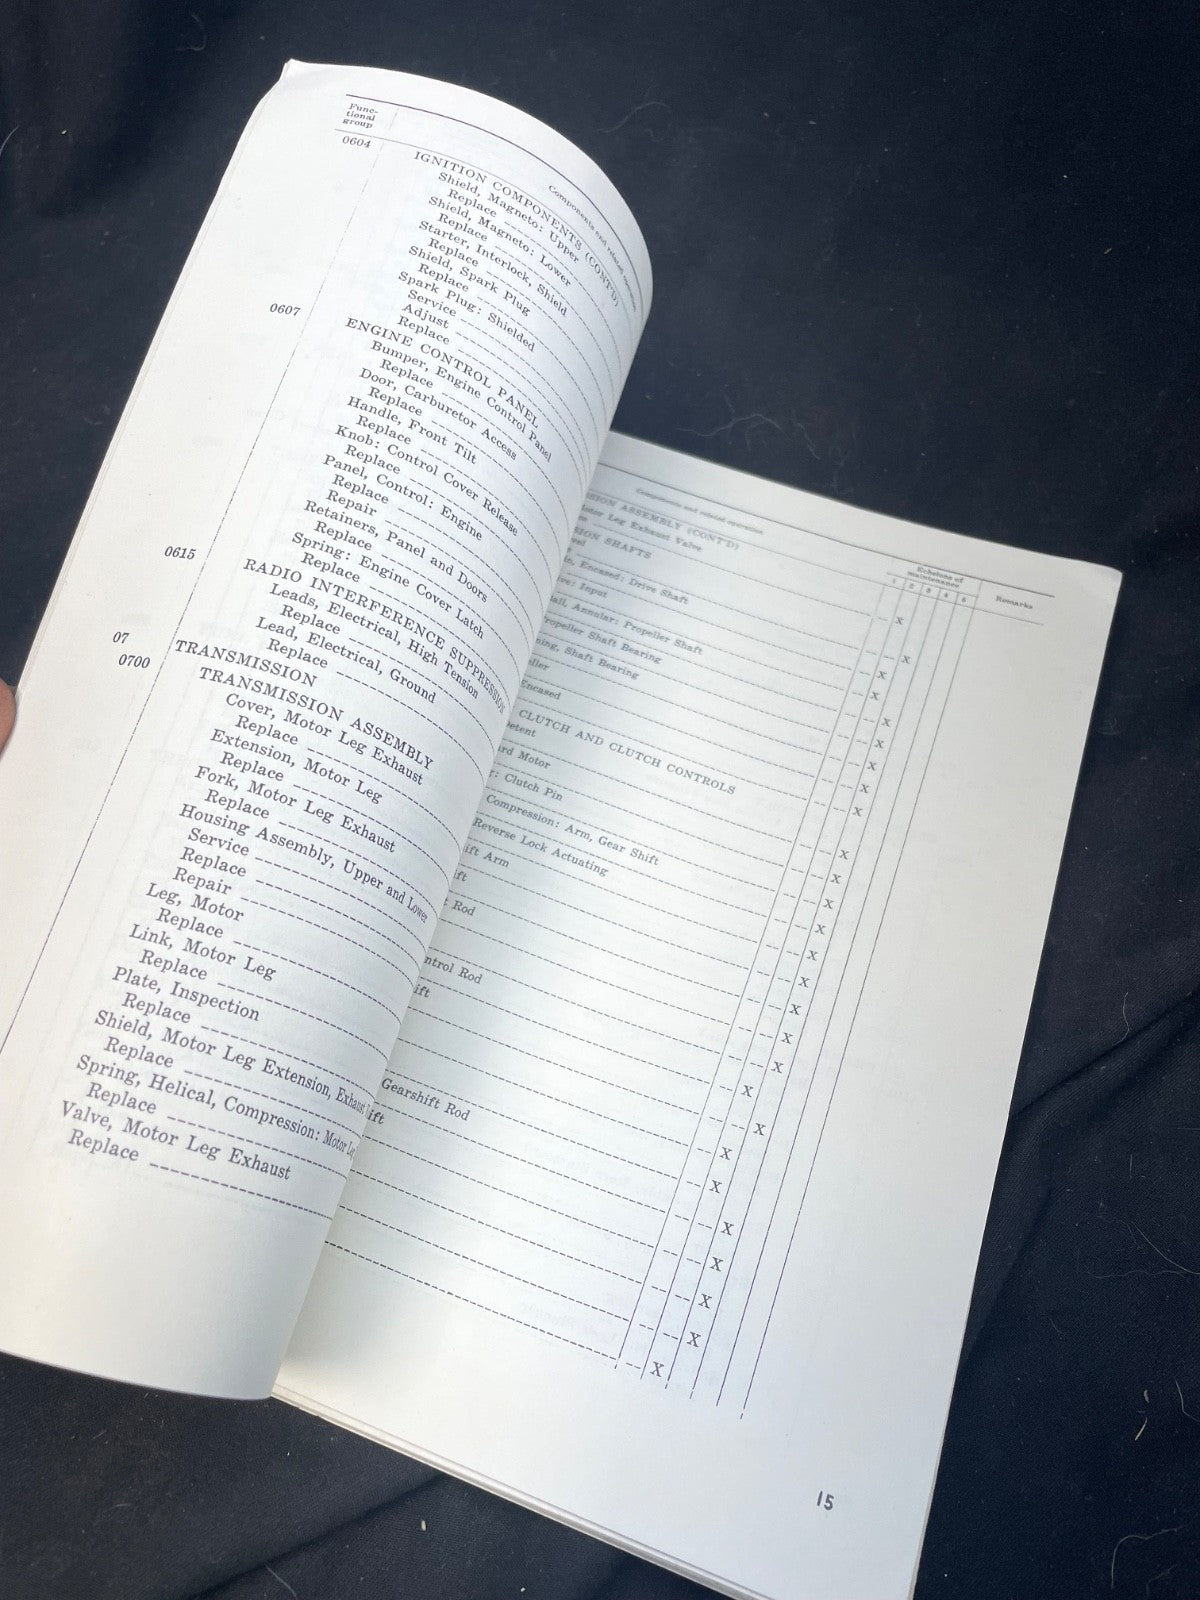 Func-
tional
group
Components and related operation
0604
IGNITION COMPONENTS (CONT'D)
Shield, Magneto: Upper
Replace
Shield, Magneto: Lower
Replace
Starter, Interlock, Shield
Replace
Shield, Spark Plug
Replace
Spark Plug: Shielded
Service
Adjust
Replace
0607
ENGINE CONTROL PANEL
Bumper, Engine Control Panel
Replace
Door, Carburetor Access
Replace
Handle, Front Tilt
Replace
Knob: Control Cover Release
Replace
Panel, Control: Engine
Replace
Repair
Retainers, Panel and Doors
Replace
Spring: Engine Cover Latch
Replace
0615
RADIO INTERFERENCE SUPPRESSION
Leads, Electrical, High Tension
Replace
Lead, Electrical, Ground
Replace
07
TRANSMISSION
0700
TRANSMISSION ASSEMBLY
Cover, Motor Leg Exhaust
Replace
Extension, Motor Leg
Replace
Fork, Motor Leg Exhaust
Replace
Housing Assembly, Upper and Lower
Service
Replace
Repair
Leg, Motor
Replace
Link, Motor Leg
Replace
Plate, Inspection
Replace
Shield, Motor Leg Extension, Exhaust
Replace
Spring, Helical, Compression: Motor Leg
Replace
Valve, Motor Leg Exhaust
Replace
Components and related operation
Echelons of
maintenance
1 2 3 4 5
Remarks
SION ASSEMBLY (CONT'D)
otor Leg Exhaust Valve
X
SION SHAFTS
le, Encased: Drive Shaft
X
ve: Input
X
all, Annular: Propeller Shaft
X
Propeller Shaft Bearing
X
ning, Shaft Bearing
X
eller
X
Encased
X
X
CLUTCH AND CLUTCH CONTROLS
etent
X
ard Motor
X
r: Clutch Pin
X
Compression: Arm, Gear Shift
X
Reverse Lock Actuating
X
ift Arm
X
ift
X
Rod
X
X
ntrol Rod
X
ift
X
X
X
Gearshift Rod
X
ift
X
X
X
X
15